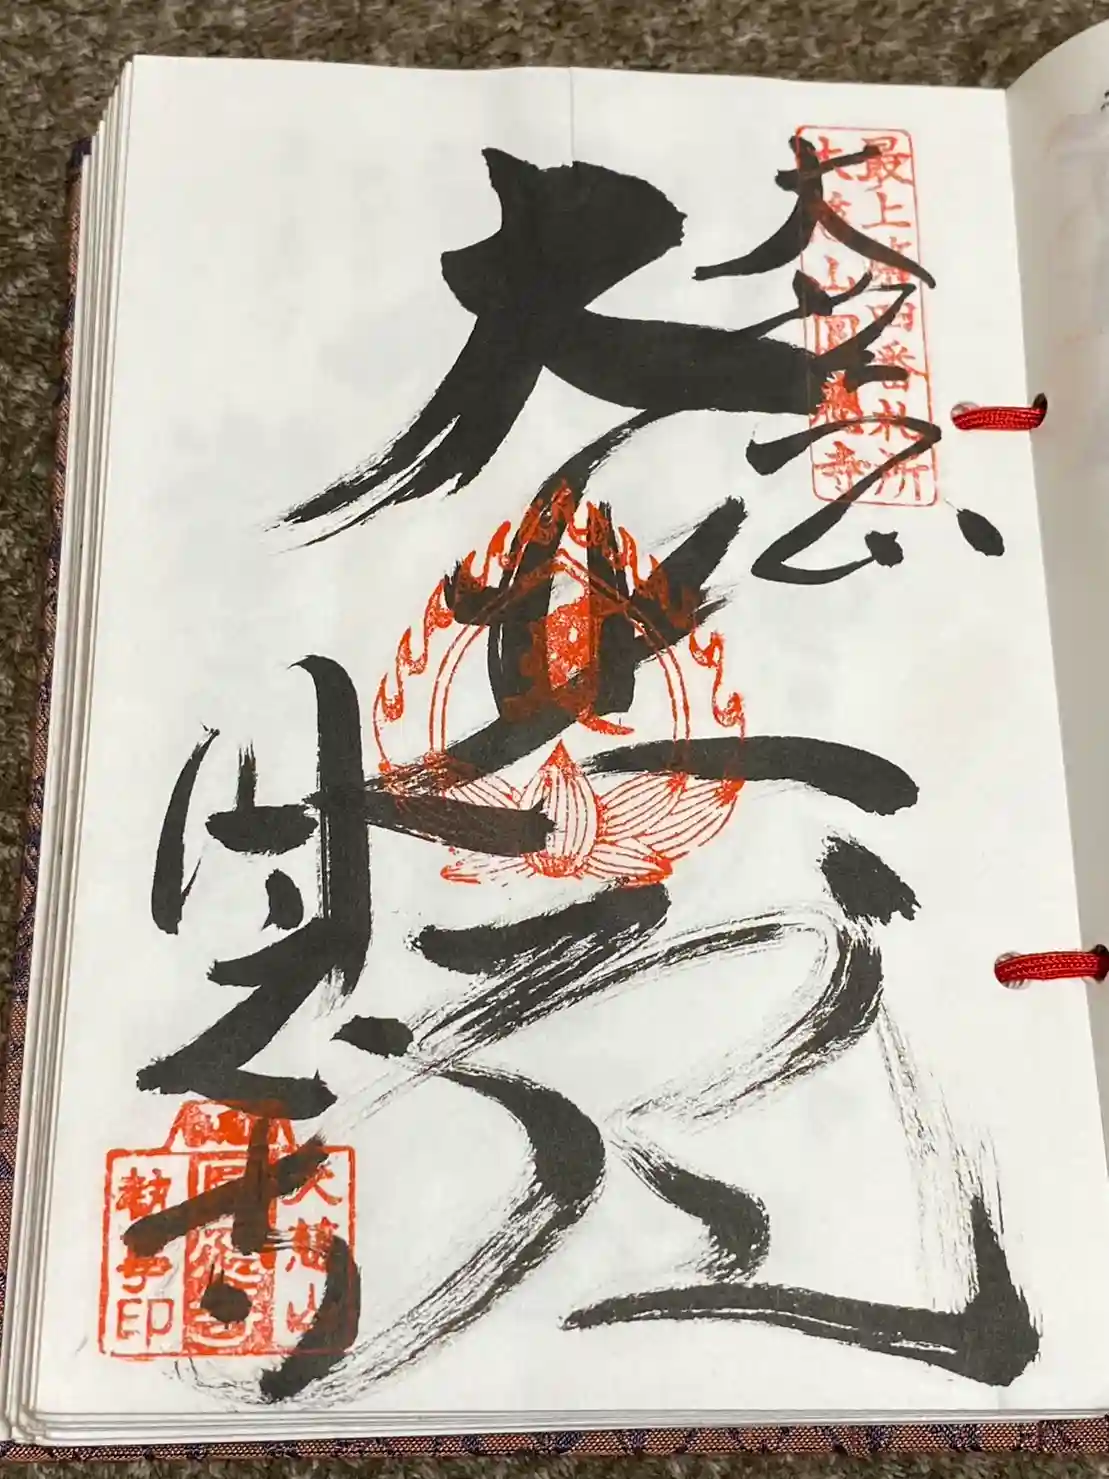 最上第四番札所
大慈山圓應寺
大悲殿
圓應寺
大慈山
圓應寺
執事印